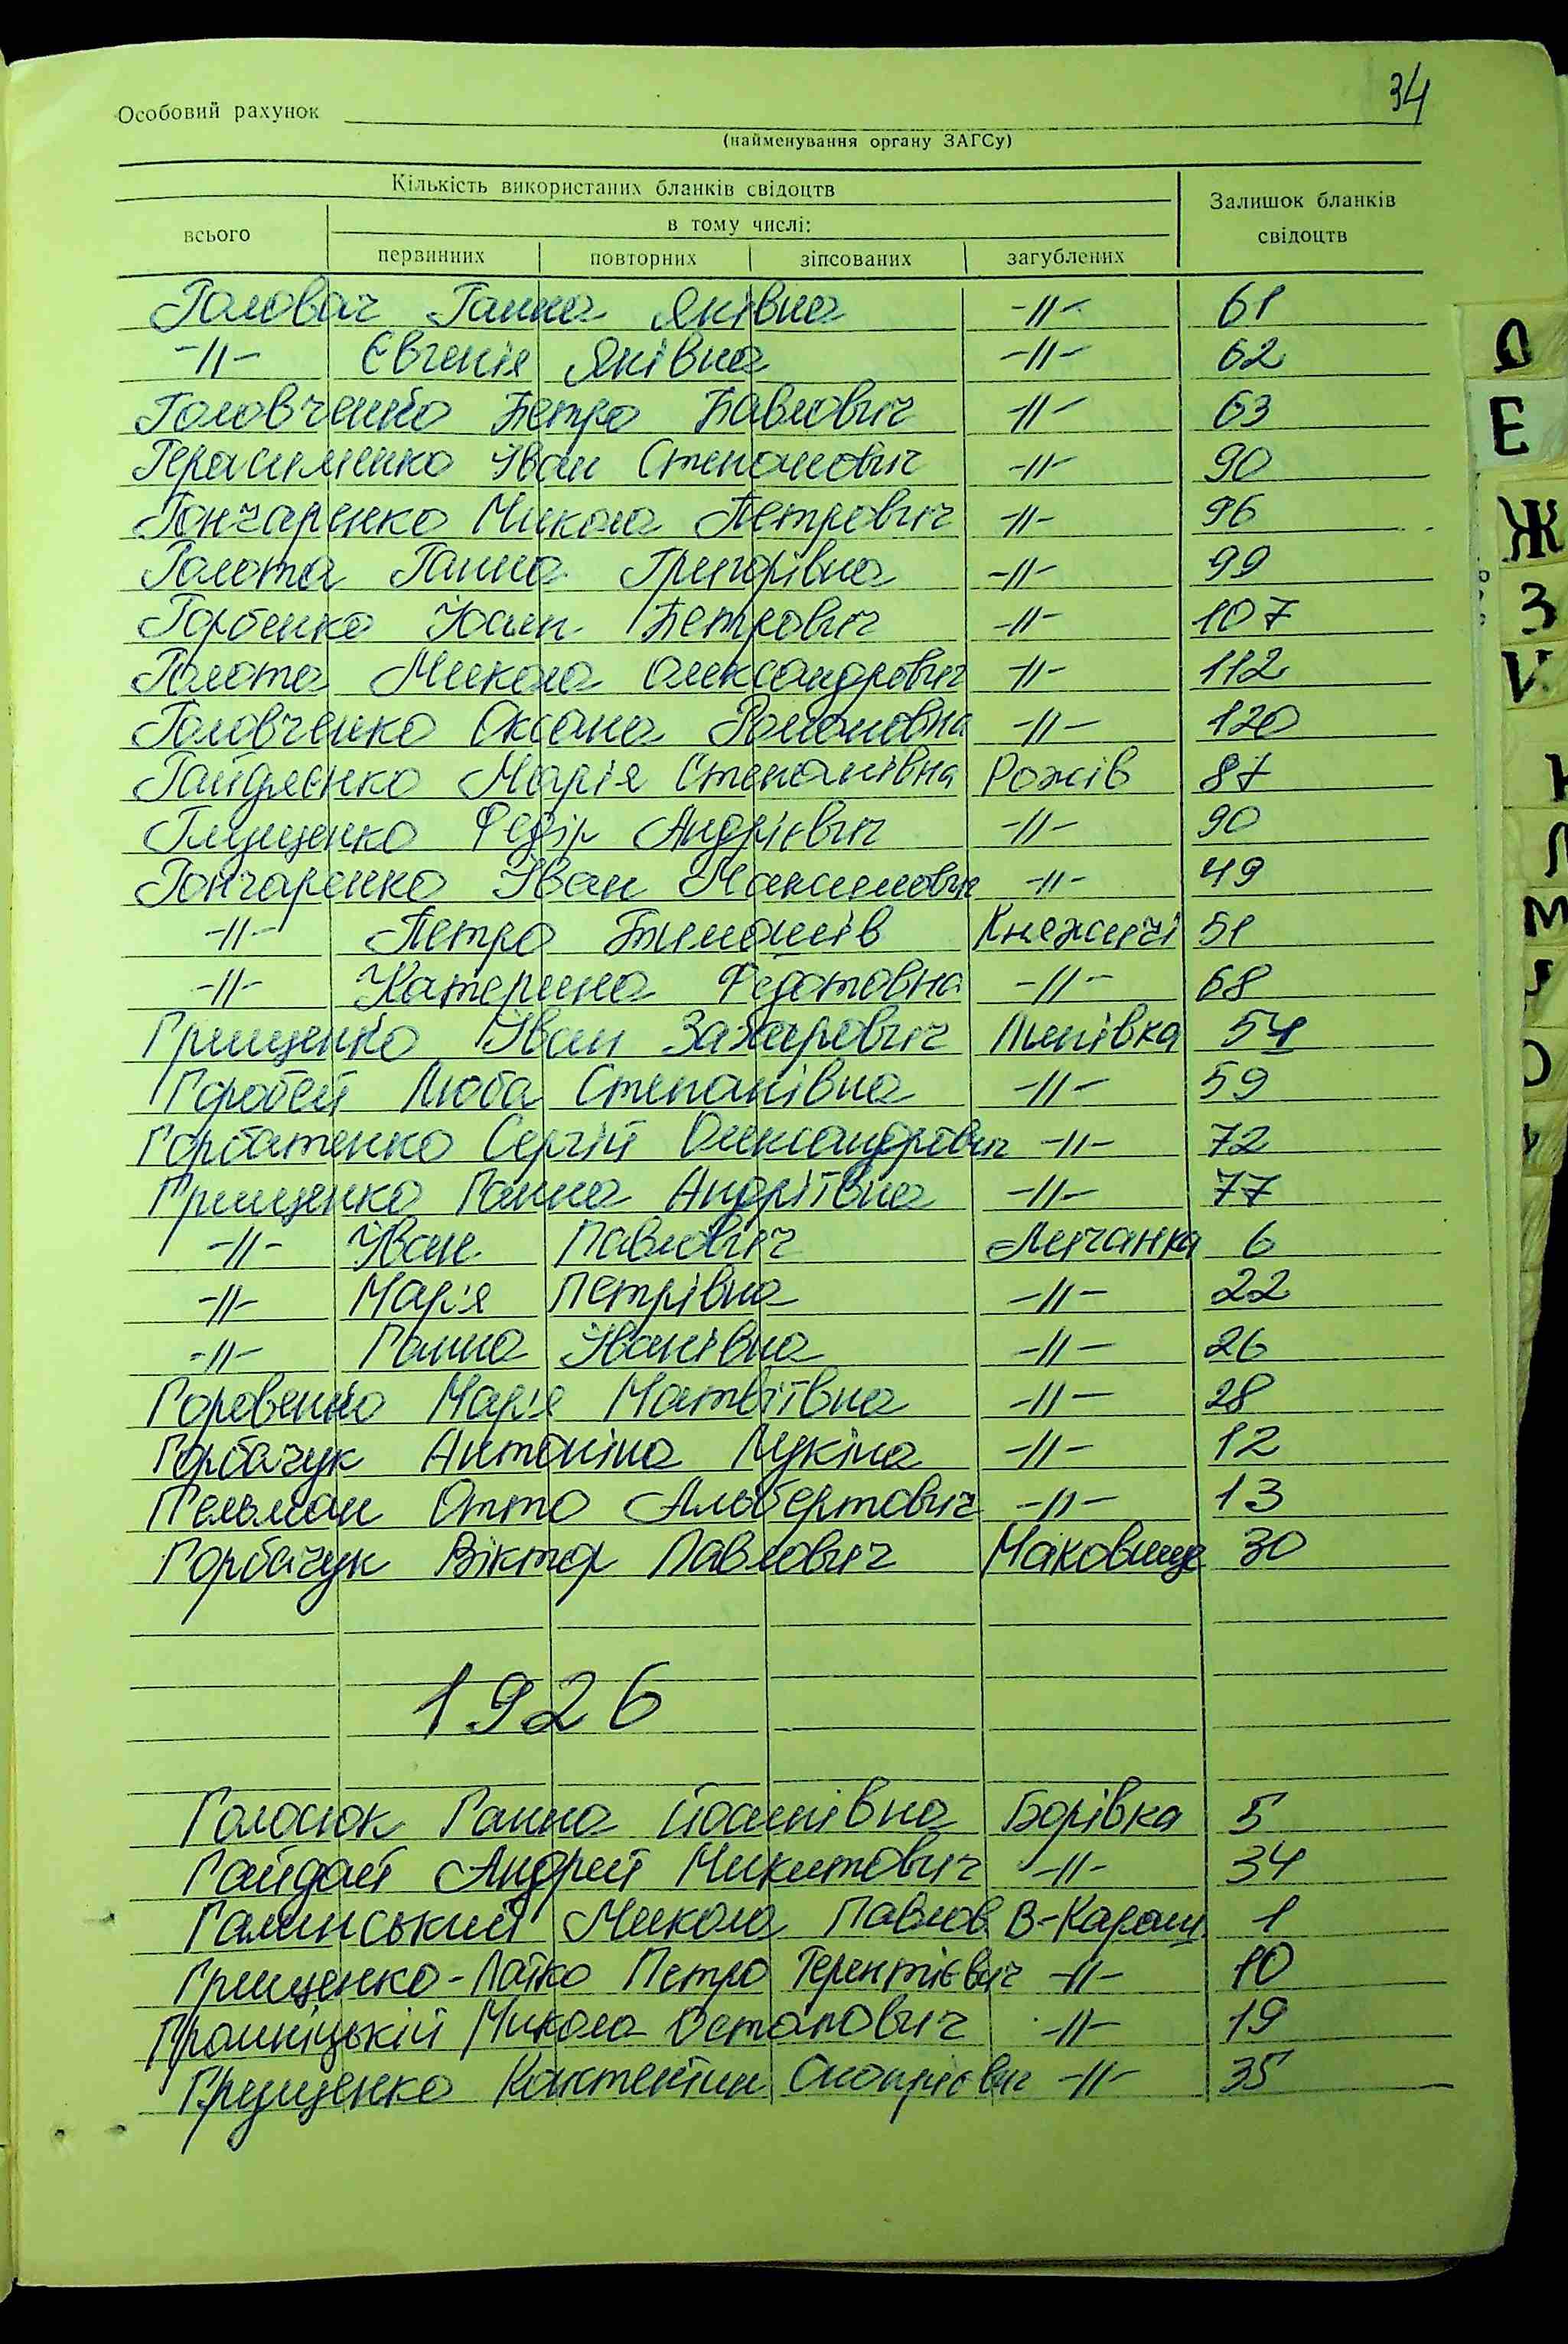 34
Особовий рахунок
(найменування органу ЗАГСу)
Кількість використаних бланків свідоцтв
Залишок бланків свідоцтв
всього
в тому числі:
первинних повторних зіпсованих загублених
Головач Ганна Яківна -//- 61
-//- Євгенія Яківна -//- 62
Головченко Петро Павлович -//- 63
Герасименко Іван Степанович -//- 90
Гончаренко Микола Петрович -//- 96
Голота Ганна Григорівна -//- 99
Горбенко Юхим Петрович -//- 107
Голота Микола Олександрович -//- 112
Головченко Оксана Романовна -//- 120
Гайдяєнко Марія Степанівна Рожів 87
Глущенко Федір Андрієвич -//- 90
Гончаренко Іван Максимович -//- 49
-//- Петро Тимошів Княжичі 51
-//- Катерина Федотовна -//- 68
Грищенко Іван Захарович Липівка 54
Горобей Люба Степанівна -//- 59
Горбатенко Сергій Олександрович -//- 72
Грищенко Ганна Андріївна -//- 77
-//- Іван Павлович Мичанка 6
-//- Марія Петрівна -//- 22
-//- Ганна Іванівна -//- 26
Горовенко Марія Матвіївна -//- 28
Горбачук Антоніна Лукіна -//- 12
Гельман Отто Альбертович -//- 13
Горбачук Віктор Павлович Маковище 30
1926
Голосюк Ганна Йосипівна Борівка 5
Гайдай Андрей Микитович -//- 34
Галинський Микола Павлов В-Караш 1
Грищенко-Лайко Петро Терентієвич -//- 10
Микола Остапович -//- 19
Грущенко Констентин -//- 35
О
Е
Ж
З
И
К
Л
М
О